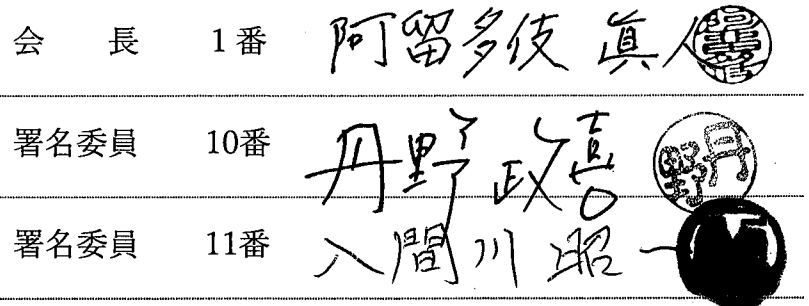 会長 1番 阿留多伎 眞人
署名委員 10番 丹野 政喜
署名委員 11番 入間川 昭一